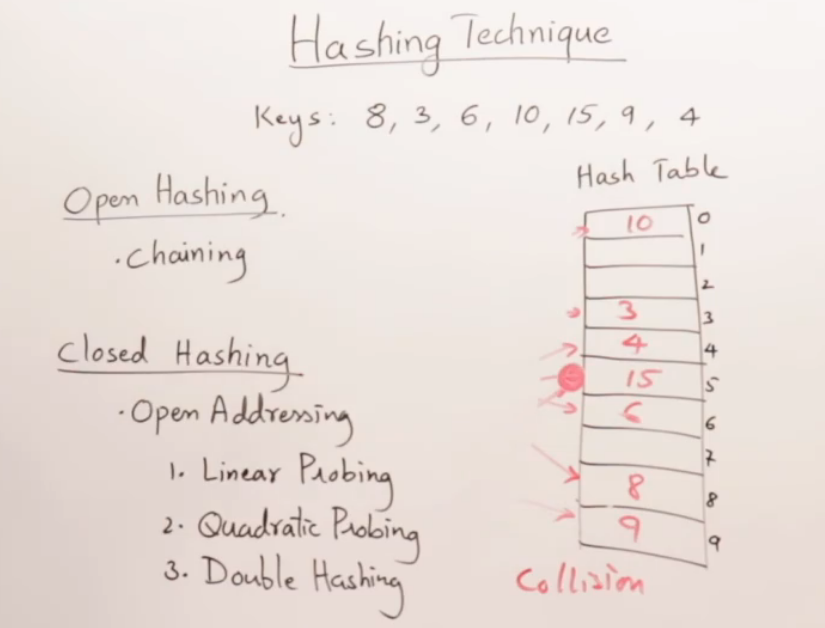 Hashing Technique
Keys: 8, 3, 6, 10, 15, 9, 4
Open Hashing.
· Chaining
Closed Hashing
· Open Addressing
1. Linear Probing
2. Quadratic Probing
3. Double Hashing
Hash Table
10 0
1
2
3 3
4 4
15 5
6 6
7
8 8
9 9
Collision